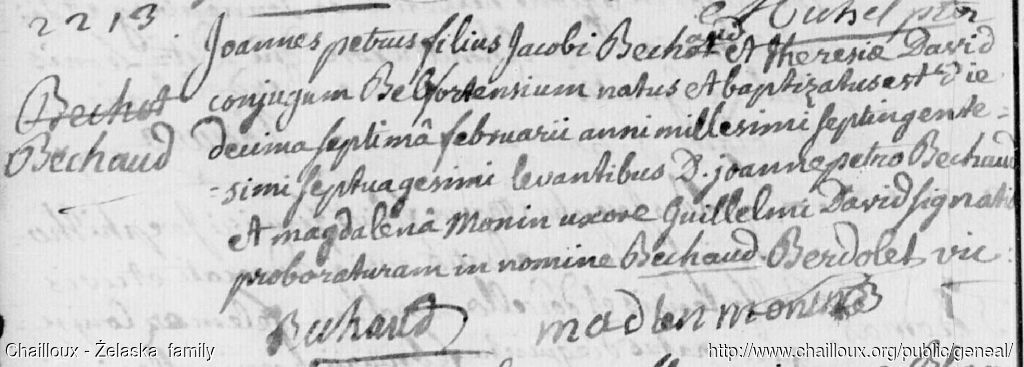 2213.
Michel ptr
Joannes petrus filius Jacobi Bechot aud et theresiæ David
Bechot
conjugum Belfortensium natus et baptizatus est die
Bechaud
decima septimâ februarii anni millesimi septingente=
=simi septuagesimi levantibus D. joanne petro Bechaud
et magdalenâ Monin uxore Guillelmi David signati
proboraturam in nomine Bechaud. Berdolet vic
Bechaud madlen monin
Chailloux - Żelaska family
http://www.chailloux.org/public/geneal/